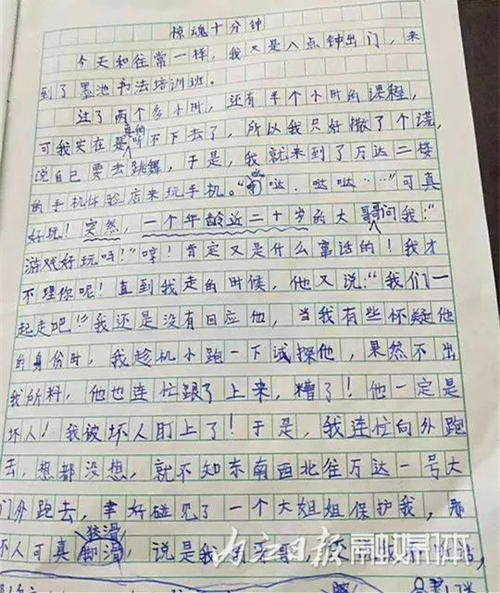 惊魂十分钟
今天和往常一样，我又是八点钟出门，来
到了墨池书法培训班。
过了两个多小时，还有半个小时的课程，
真的
可我实在是听不下去了，所以我只好撒了个谎，
说自己要去跳舞，于是，我就来到了万达二楼
的手机体验店来玩手机。“哒、哒哒……”可真
好玩！突然，一个年龄近二十岁的大哥哥问我：“
游戏好玩吗？”哼！肯定又是什么事话的！我才
不理你呢！直到我走的时候，他又说：“我们一
起走吧！”我还是没有回应他，当我有些怀疑他
的身份时，我趁机小跑一下试探他，果然不出
我所料，他也连忙跟了上来，糟了！他一定是
坏人！我被坏人盯上了！于是，我连忙向外跑
去，想都没想，就不知东南西北往万达一号大
门外跑去，幸好碰见了一个大姐姐保护我，那
狡猾
坏人可真，说是我
内江日报融媒体